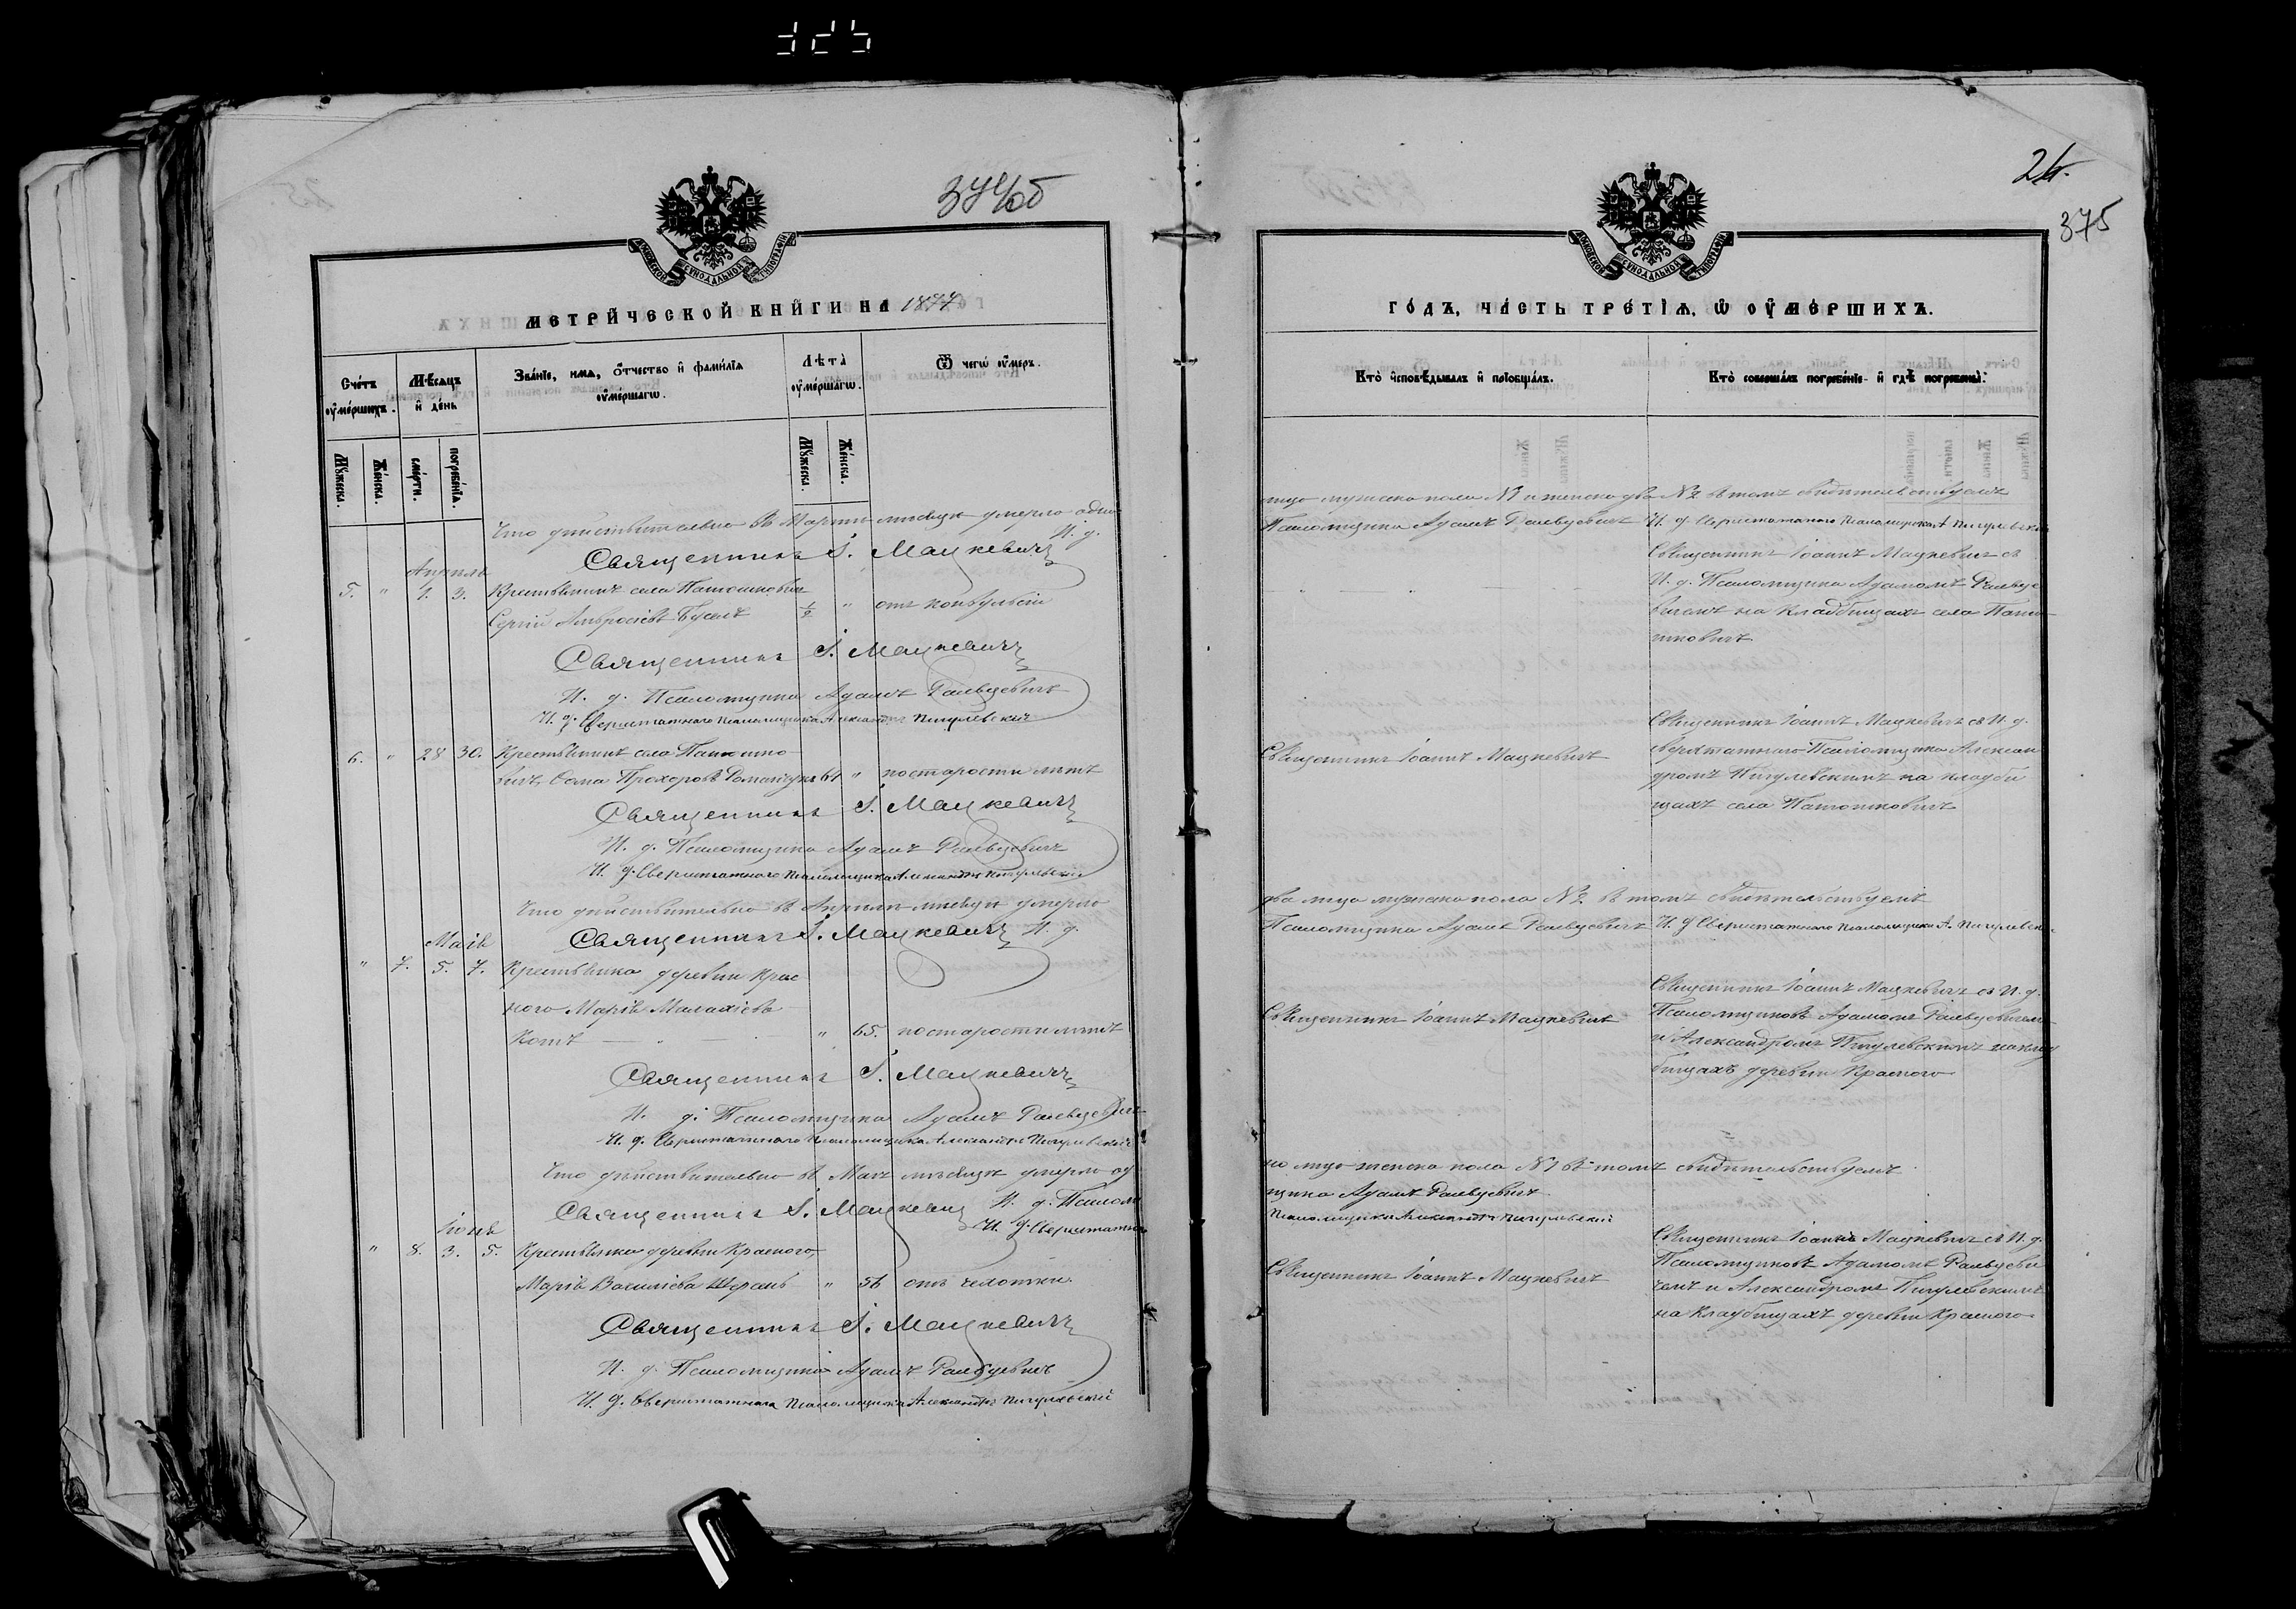 374об
МЕТРИЧЕСКОЙ КНИГИ НА 1877
Счетъ умершихъ.
Мѣсяцъ и день
Званіе, имя, отчество и фамилія умершагѡ.
Лѣта умершагѡ.
Ѿ чегѡ умеръ.
Мужеска.
Женска.
смерти.
погребенія.
Мужеска.
Женска.
Что дѣйствительно въ Мартѣ мѣсяцѣ умерло одно
Священникъ І. Мацкевичъ И. д.
Апрѣль
5. " 1. 3. Крестьянинъ села
Сергій Амвросіевъ Буселъ 1/2 " отъ конвульсіи
Священникъ І. Мацкевичъ
И. д. Псаломщика Адамъ
И. д. Сверхштатнаго Псаломщика Александръ Пигулевскій
6. " 28 30. Крестьянинъ села
Ѳома Прохоровъ 61 " по старости лѣтъ
Священникъ І. Мацкевичъ
И. д. Псаломщика Адамъ
И. д. Сверхштатнаго Псаломщика Александръ Пигулевскій
Что дѣйствительно въ Апрѣлѣ мѣсяцѣ умерло
Священникъ І. Мацкевичъ И. д.
Маія
" 7. 5. 7. Крестьянка деревни Крас
ного Марія Малахіева
Котъ " 65. по старости лѣтъ
Священникъ І. Мацкевичъ
И. д. Псаломщика Адамъ
И. д. Сверхштатнаго Псаломщика Александръ Пигулевскій
Что дѣйствительно въ Маѣ мѣсяцѣ умерло од
Священникъ І. Мацкевичъ И. д. Псалом
И. д. Сверхштатнаго
Іюня
" 8. 3. 5. Крестьянка деревни Красного
Марія Василіева " 56 отъ чахотки.
Священникъ І. Мацкевичъ
И. д. Псаломщика Адамъ
И. д. Сверхштатнаго Псаломщика Александръ Пигулевскій
24.
375
ГОДЪ, ЧАСТЬ ТРЕТІЯ, Ѡ УМЕРШИХЪ.
Кто исповѣдывалъ и пріобщалъ.
Кто совершалъ погребеніе и гдѣ погребены.
лицо мужеска пола № 1 и женска два № 2 въ томъ свидѣтельствуемъ
Псаломщика Адамъ И. д. Сверхштатнаго Псаломщика А. Пигулевскій
Священникъ Іоаннъ Мацкевичъ съ
И. д. Псаломщика Адамомъ
на кладбищахъ села
Священникъ Іоаннъ Мацкевичъ
Священникъ Іоаннъ Мацкевичъ съ И. д.
сверхштатнаго Псаломщика Алексан
дромъ Пигулевскимъ на кладби
щахъ села
два лица мужеска пола № 2. въ томъ свидѣтельствуемъ
Псаломщика Адамъ И. д. Сверхштатнаго Псаломщика А. Пигулевскій
Священникъ Іоаннъ Мацкевичъ
Священникъ Іоаннъ Мацкевичъ съ И. д.
Псаломщиковъ Адамомъ
и Александромъ Пигулевскимъ на клад
бищахъ деревни Красного
но лицо женска пола № 1 въ томъ свидѣтельствуемъ
щика Адамъ
Псаломщика Александръ Пигулевскій
Священникъ Іоаннъ Мацкевичъ
Священникъ Іоаннъ Мацкевичъ съ И. д.
Псаломщиковъ Адамомъ
чемъ и Александромъ Пигулевскимъ
на кладбищахъ деревни Красного